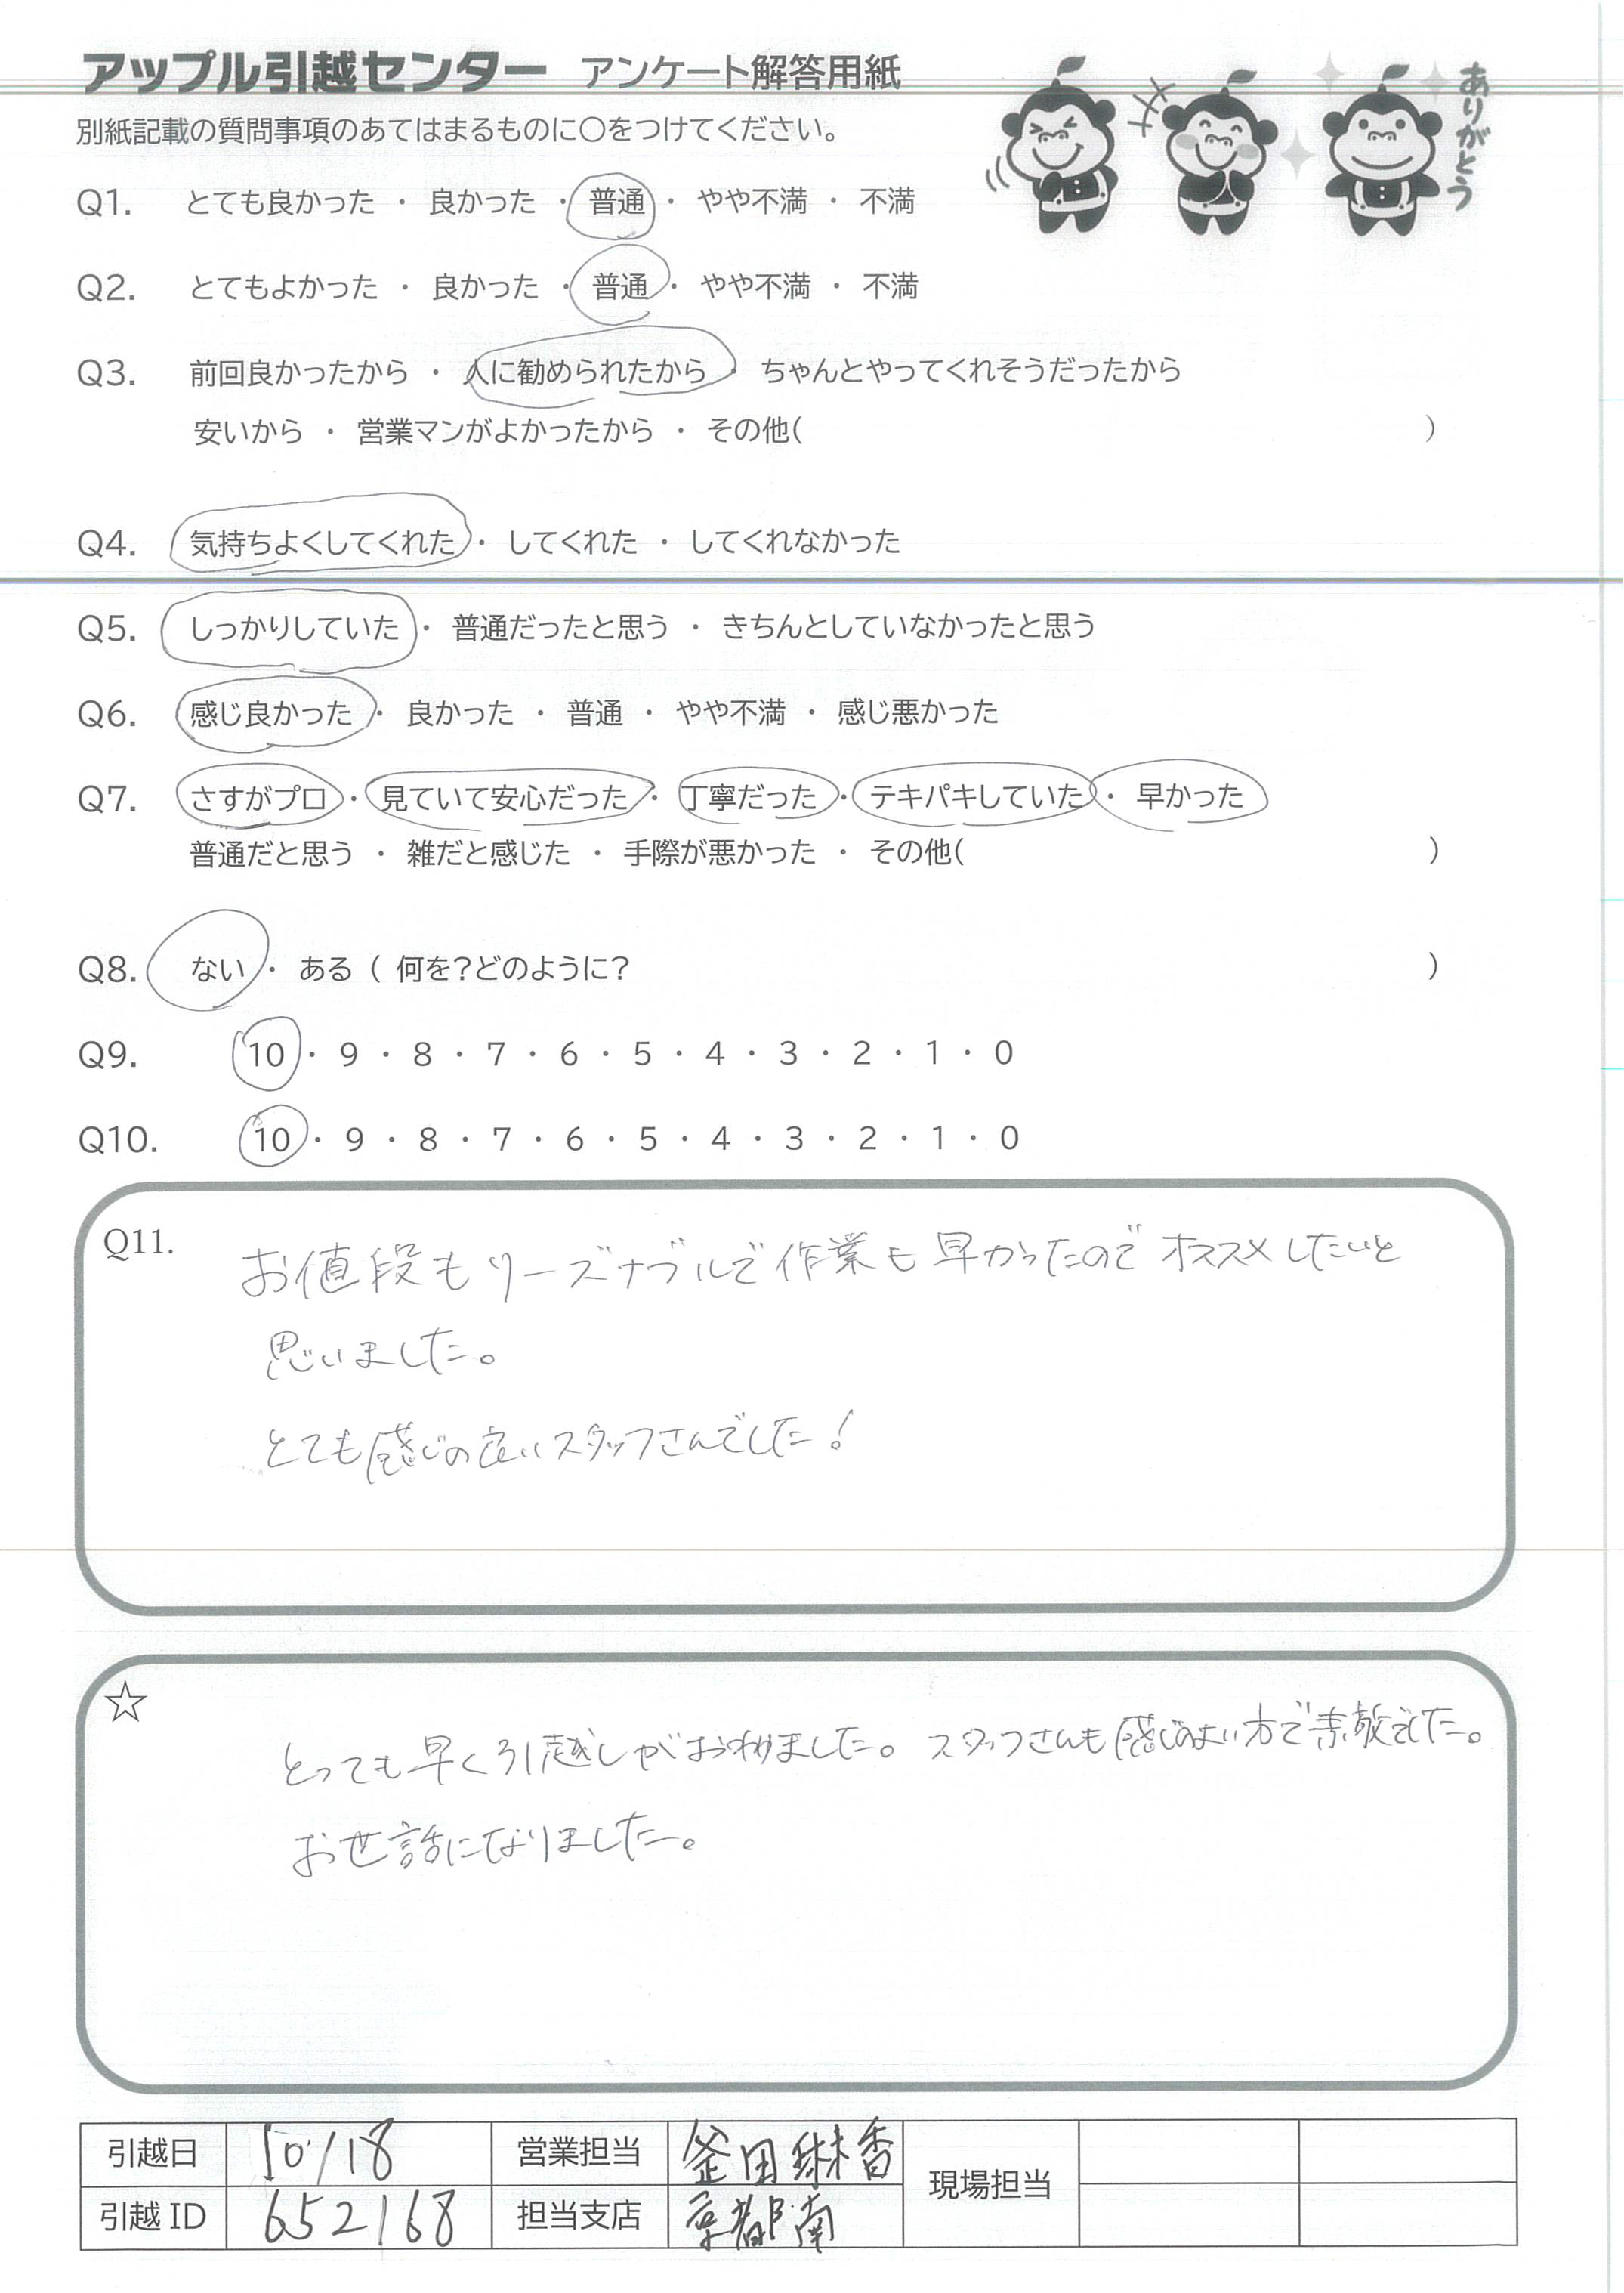 アップル引越センター アンケート解答用紙
ありがとう
別紙記載の質問事項のあてはまるものに○をつけてください。
Q1. とても良かった ・ 良かった ・ 普通 ・ やや不満 ・ 不満
Q2. とてもよかった ・ 良かった ・ 普通 ・ やや不満 ・ 不満
Q3. 前回良かったから ・ 人に勧められたから ・ ちゃんとやってくれそうだったから
安いから ・ 営業マンがよかったから ・ その他( )
Q4. 気持ちよくしてくれた ・ してくれた ・ してくれなかった
Q5. しっかりしていた ・ 普通だったと思う ・ きちんとしていなかったと思う
Q6. 感じ良かった ・ 良かった ・ 普通 ・ やや不満 ・ 感じ悪かった
Q7. さすがプロ ・ 見ていて安心だった ・ 丁寧だった ・ テキパキしていた ・ 早かった
普通だと思う ・ 雑だと感じた ・ 手際が悪かった ・ その他( )
Q8. ない ・ ある ( 何を?どのように? )
Q9. 10 ・ 9 ・ 8 ・ 7 ・ 6 ・ 5 ・ 4 ・ 3 ・ 2 ・ 1 ・ 0
Q10. 10 ・ 9 ・ 8 ・ 7 ・ 6 ・ 5 ・ 4 ・ 3 ・ 2 ・ 1 ・ 0
Q11. お値段もリーズナブルで作業も早かったのでオススメしたいと
思いました。
とても感じの良いスタッフさんでした!
☆
とっても早く引越しがおわりました。スタッフさんも感じのよい方で素敵でした。
お世話になりました。
引越日 10/18 営業担当 釜田琳香 現場担当
引越ID 652168 担当支店 京都南